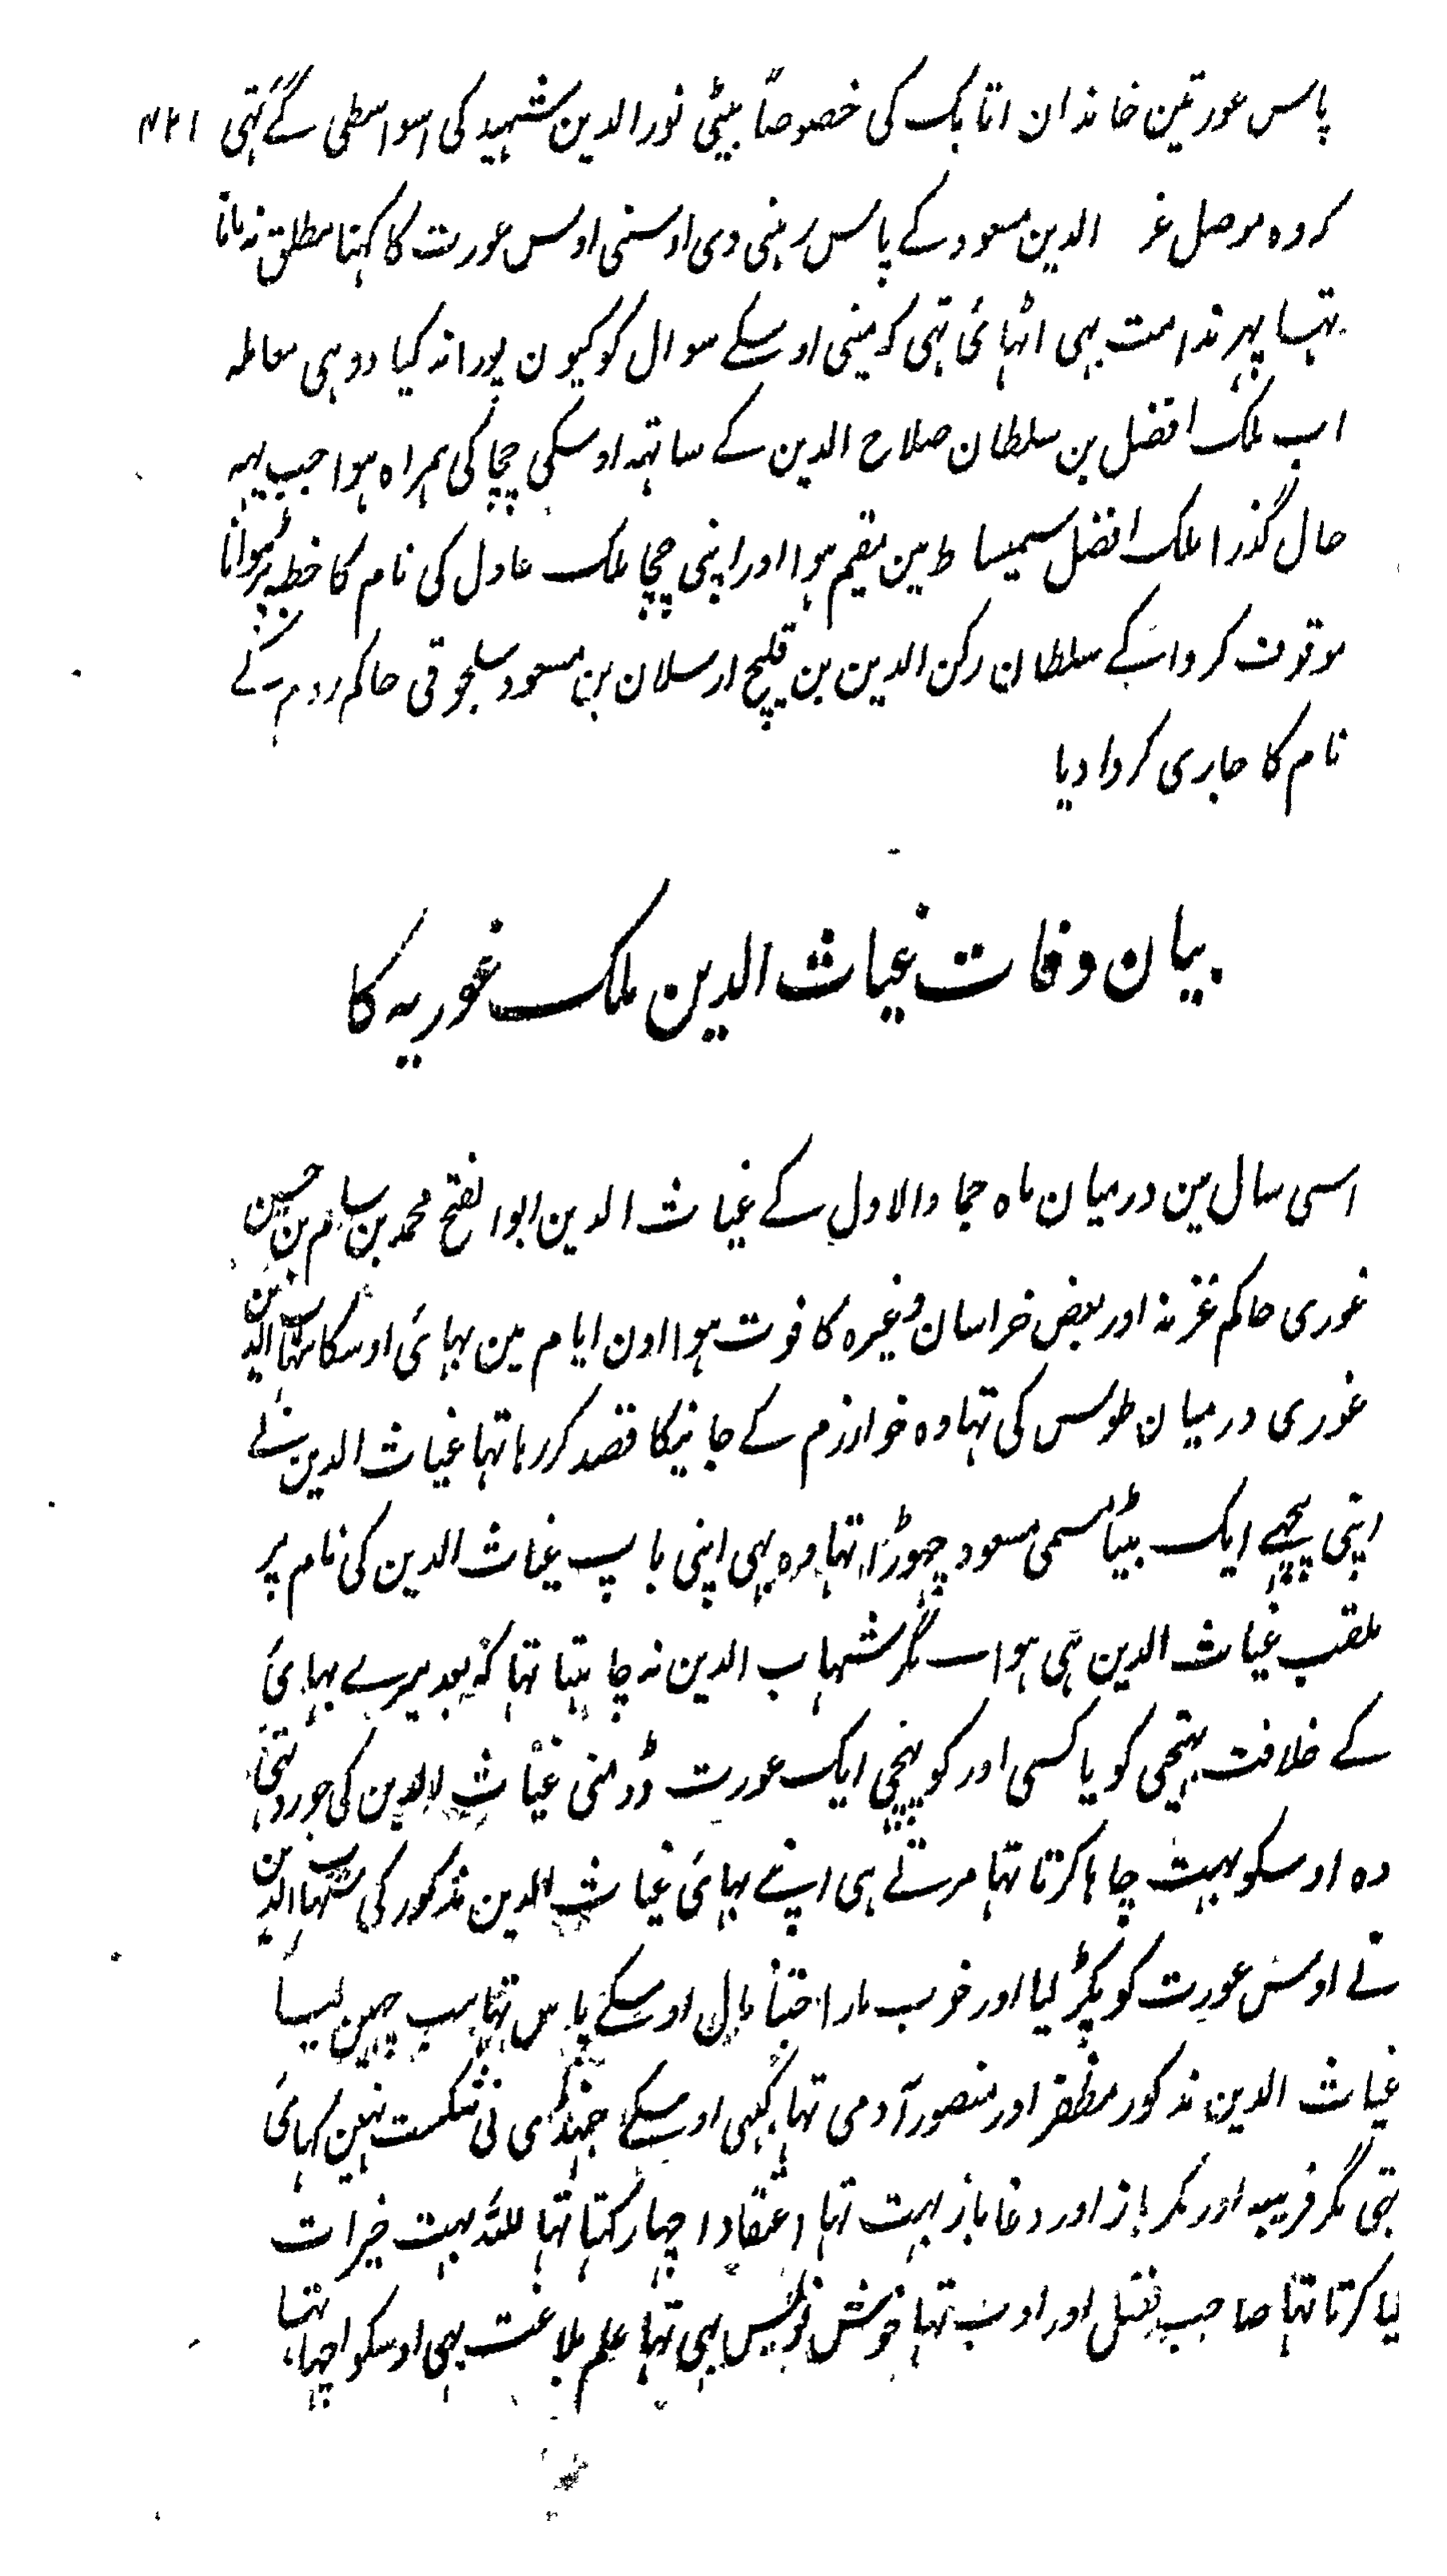 پاس عورتین خاندان اتابک کی خصوصاً بیٹی نورالدین شہید کی اسواسطی گئے تہی ۴۲۱
کہ وہ موصل غر الدین مسعود کے پاس رہنی دی اوسنی اوس عورت کا کہنا مطلق نہ مانا
تہا پہر ندامت بہی اٹہائی تہی کہ مینی اوسکے سوال کو کیون پورا نہ کیا ووہی معاملہ
اب ملک افضل بن سلطان صلاح الدین کے ساتہہ اوسکی چچا کی ہمراہ ہوا جب یہہ
حال گذرا ملک افضل سمیساط مین مقیم ہوا اور اپنی چچا ملک عادل کی نام کا خطبہ پڑہوانا
موقوف کرواکے سلطان رکن الدین بن قلیج ارسلان بن مسعود سلجوقی حاکم روم کے
نام کا جاری کروا دیا
بیان وفات غیاث الدین ملک غوریہ کا
اسی سال مین درمیان ماہ جماد والاول کے غیاث الدین ابو الفتح محمد بن سام بن حسین
غوری حاکم غزنہ اور بعض خراسان وغیرہ کا فوت ہوا اون ایام مین بہائی اوسکا شہاب الدین
غوری درمیان طوس کی تہا وہ خوارزم کے جانیکا قصد کر رہا تہا غیاث الدین نے
اپنی پیچہے ایک بیٹا مسمی مسعود چہوڑا تہا وہ بہی اپنی باپ غیاث الدین کی نام پر
ملقب غیاث الدین ہی ہوا مگر شہاب الدین نہ چاہتا تہا کہ بعد میرے بہائی
کے خلافت بہتیجی کو یا کسی اور کو پہنچی ایک عورت ڈومنی غیاث الدین کی جورو تہی
وہ اوسکو بہت چاہا کرتا تہا مرتے ہی اپنے بہائی غیاث الدین مذکور کی شہاب الدین
نے اوس عورت کو پکڑ لیا اور خوب مارا جتنا مال اوسکے پاس تہا سب چہین لیا
غیاث الدین مذکور مظفر اور منصور آدمی تہا کبہی اوسکے جہنڈی نی شکست نہین کہائی
تہی مگر فریبیہ اور مکر باز اور دغا باز بہت تہا اعتقاد اچہا رکہتا تہا للہ بہت خیرات
کیا کرتا تہا صاحب فضل اور ادب تہا خوش نویس بہی تہا علم بلاغت بہی اوسکو اچہا تہا